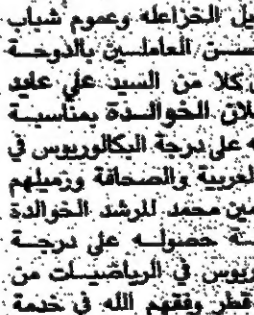 يل الخزاعله وعموم شباب
حسن العاملين بالدوحة
كلا من السيد علي عايد
لان الخوالدة بمناسبة
ه على درجة البكالوريوس في
لغربية والصحافة وزميلهم
مين محمد المرشد الخوالدة
ة حصوله على درجة
وريوس في الرياضيات من
قطر وفقهم الله في خدمة